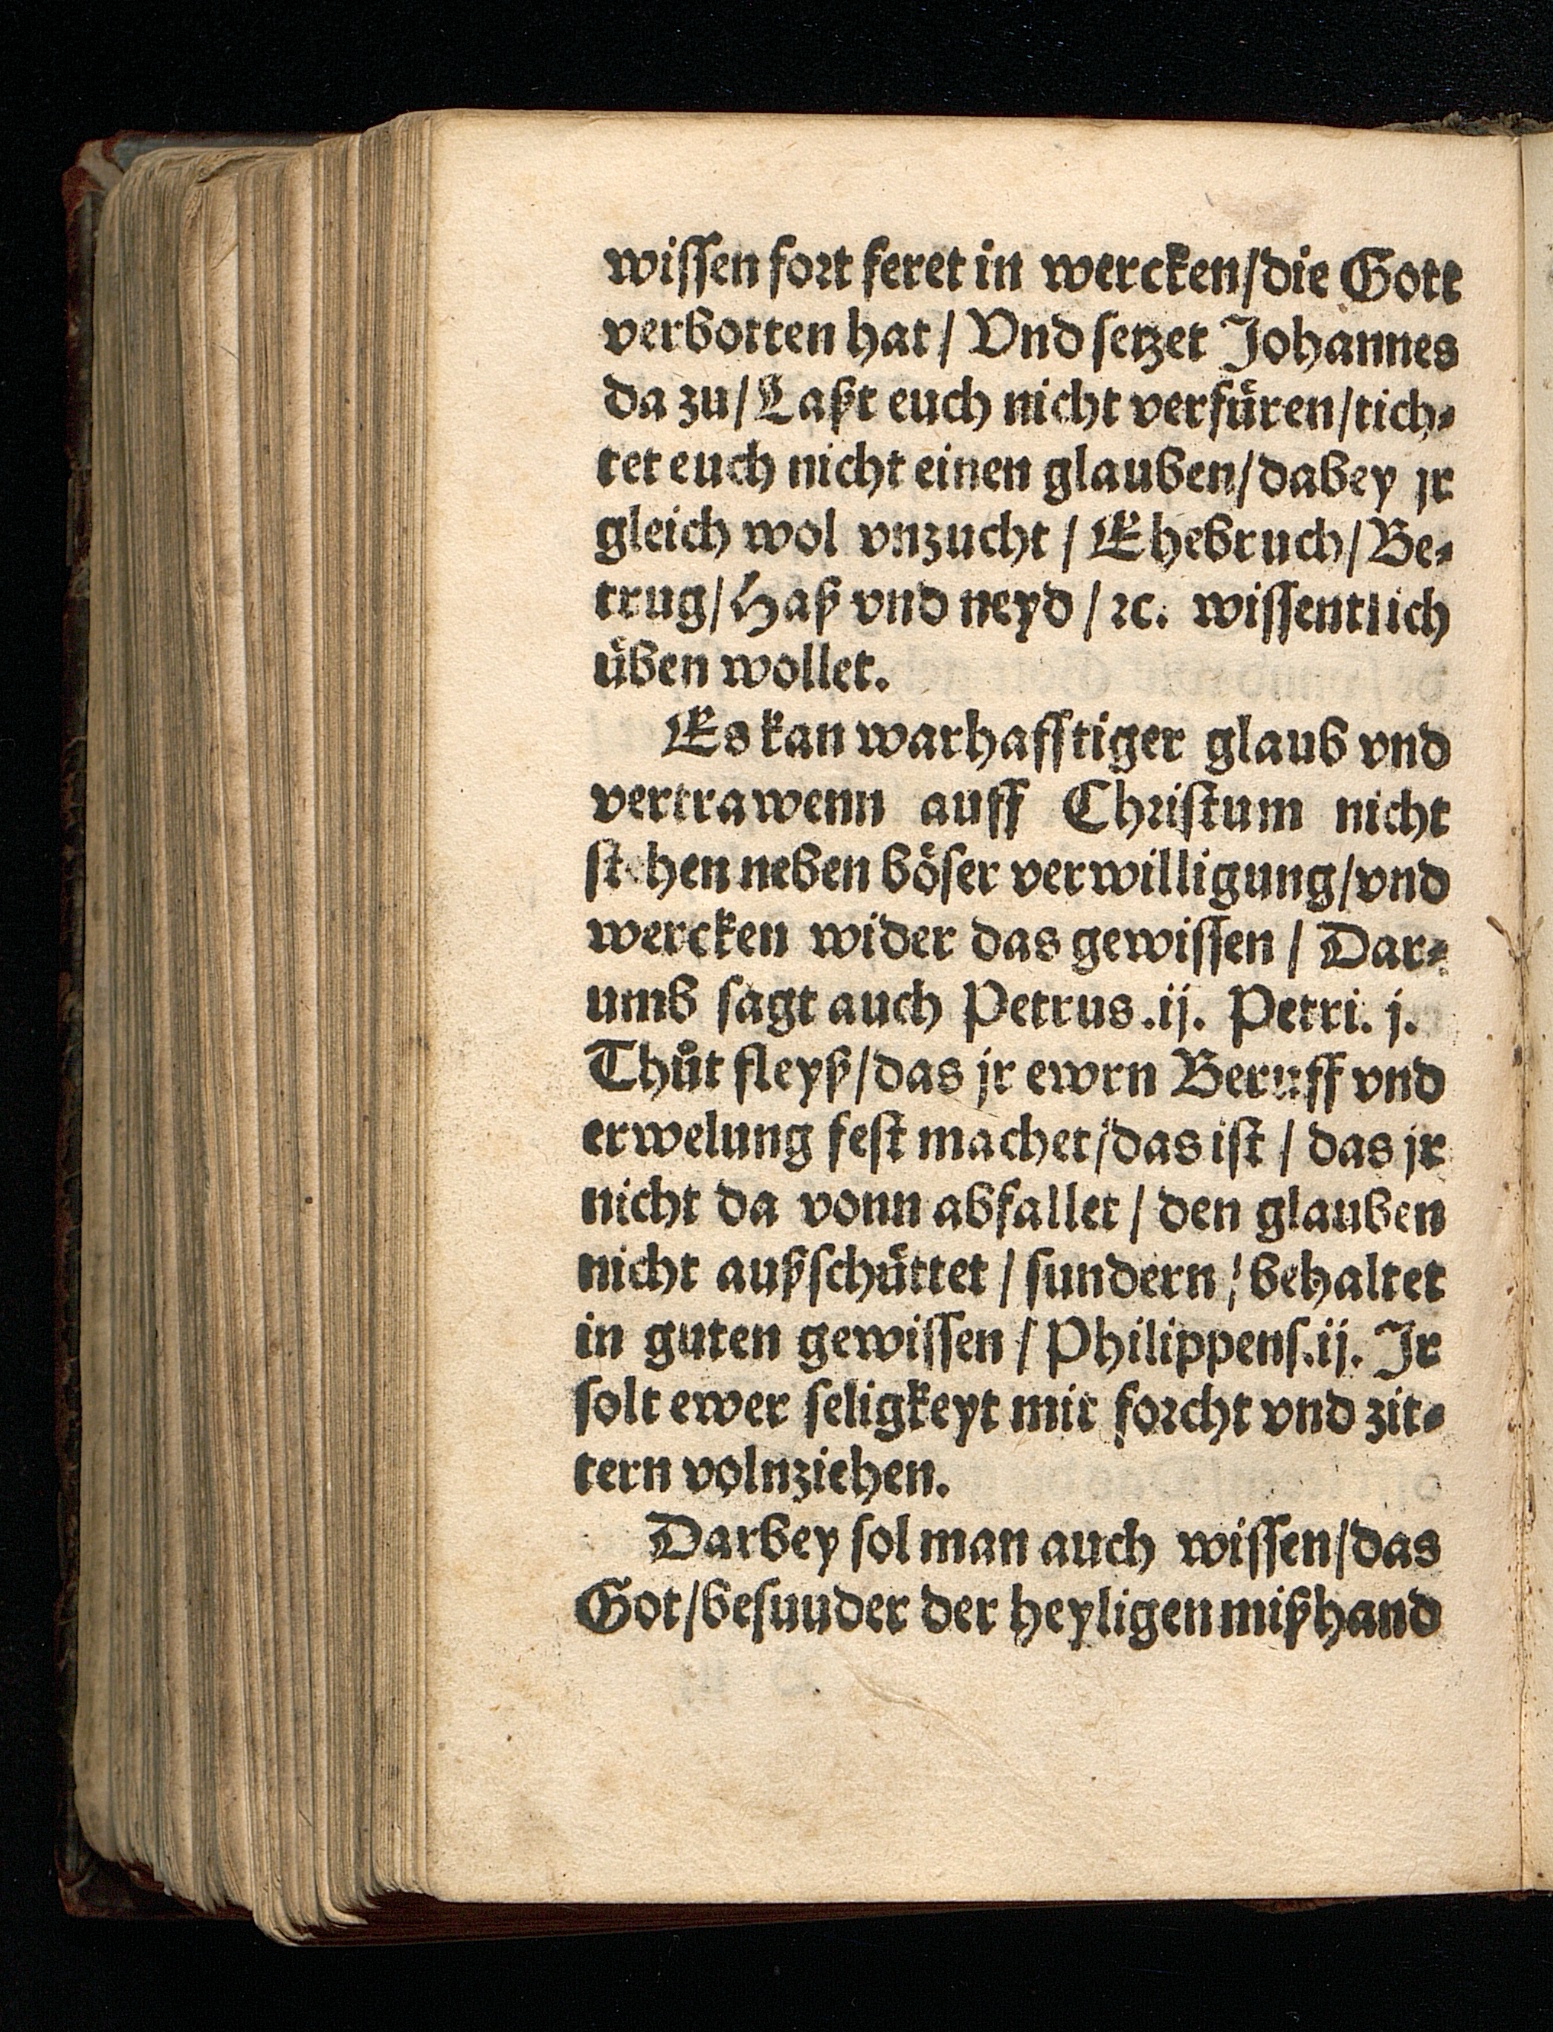 wiſſen fort feret in wercken/die Gott
verbotten hat/ Vnd ſetzet Johannes
da zu/ Laßt euch nicht verfuͤren/tich⸗
tet euch nicht einen glauben/dabey jr
gleich wol vnzucht / Ehebruch/ Be⸗
trug/ Haß vnd neyd / ꝛc. wiſſentlich
uͤben wollet.
Es kan warhafftiger glaub vnd
vertrawenn auff Chriſtum nicht
ſtehen neben boͤſer verwilligung/vnd
wercken wider das gewiſſen / Dar⸗
umb ſagt auch Petrus .ij. Petri. j.
Thuͦt fleyß/das jr ewrn Beruff vnd
erwelung feſt machet/das iſt / das jr
nicht da vonn abfallet / den glauben
nicht außſchuͤttet / ſundern / behaltet
in guten gewiſſen / Philippenſ.ij. Jr
ſolt ewer ſeligkeyt mit forcht vnd zit⸗
tern volnziehen.
Darbey ſol man auch wiſſen/das
Got/beſuuder der heyligen mißhand